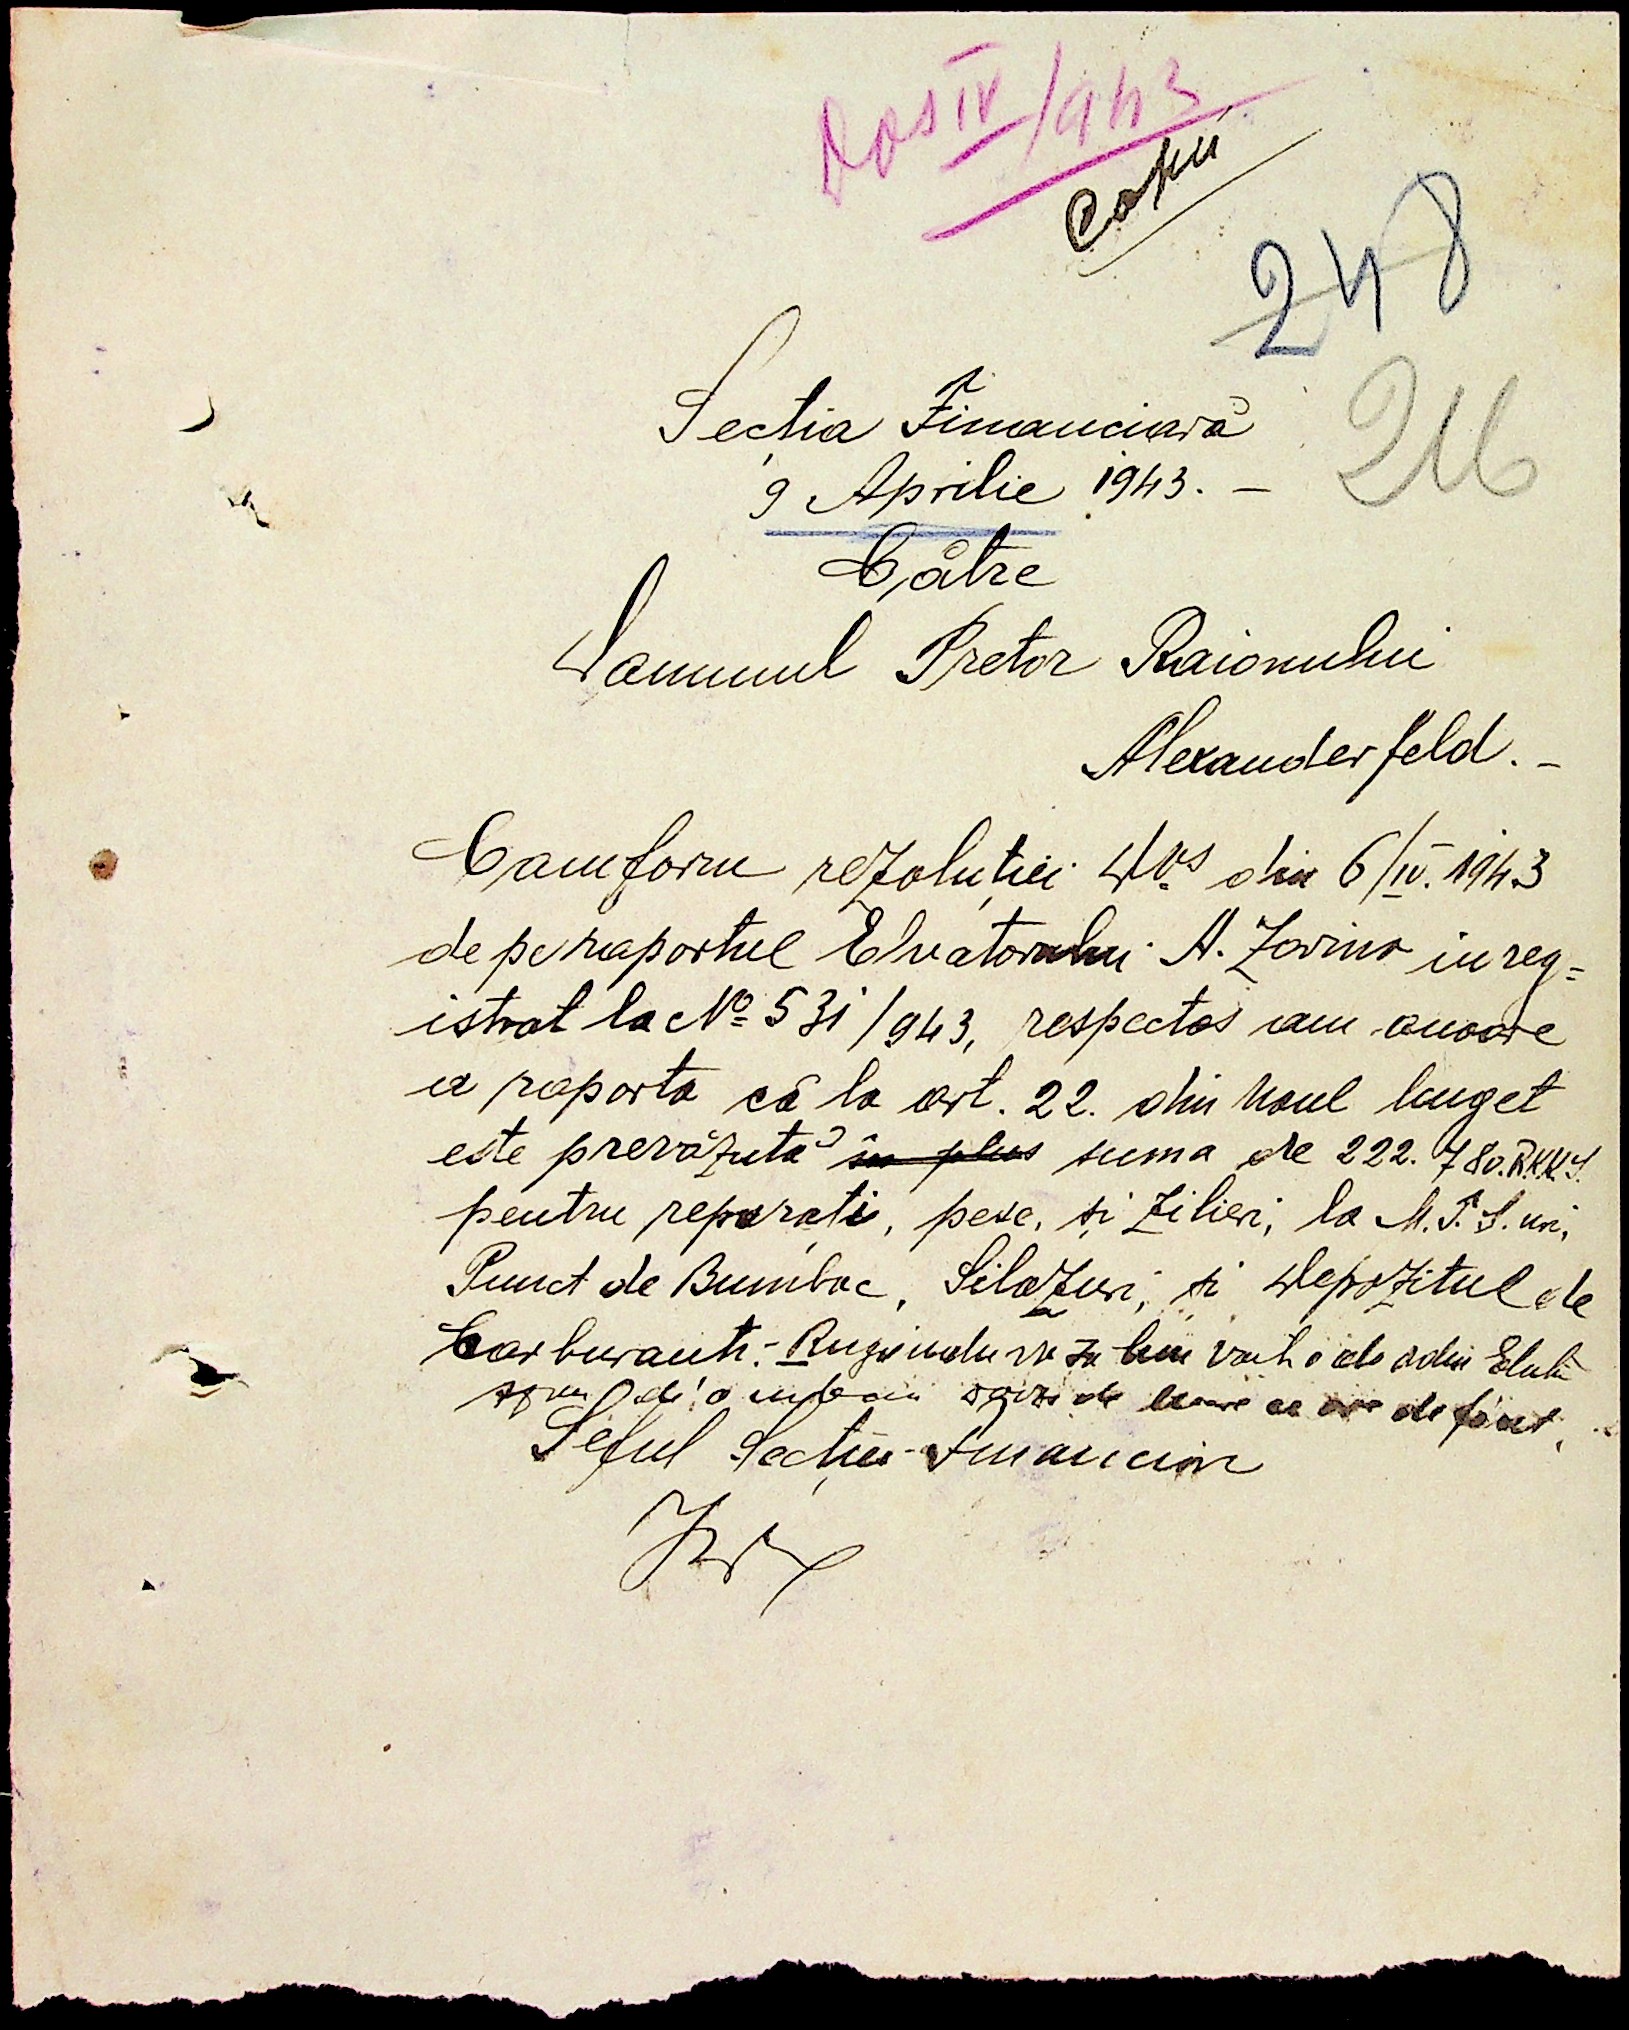 Dos IV/943
Copii
248
216
Secția Financiară
9 Aprilie 1943. –
Către
Domnul Pretor Raionului
Alexanderfeld. –
Conform rezoluției Dvs din 6/IV. 1943
de pe raportul A. Zorino inreg=
istrat la No 531/943, respectos am onoare
a raporta că la art. 22. din noul buget
este prevăzută în plus suma de 222.780. R.K.K.S.
pentru reparații, pese, și zilieri, la M.T.S. uri,
Punct de Bumbac, Silozuri, și Depozitul de
Carburanti. – Rugându vă să
de de
Șeful Secției Financiare